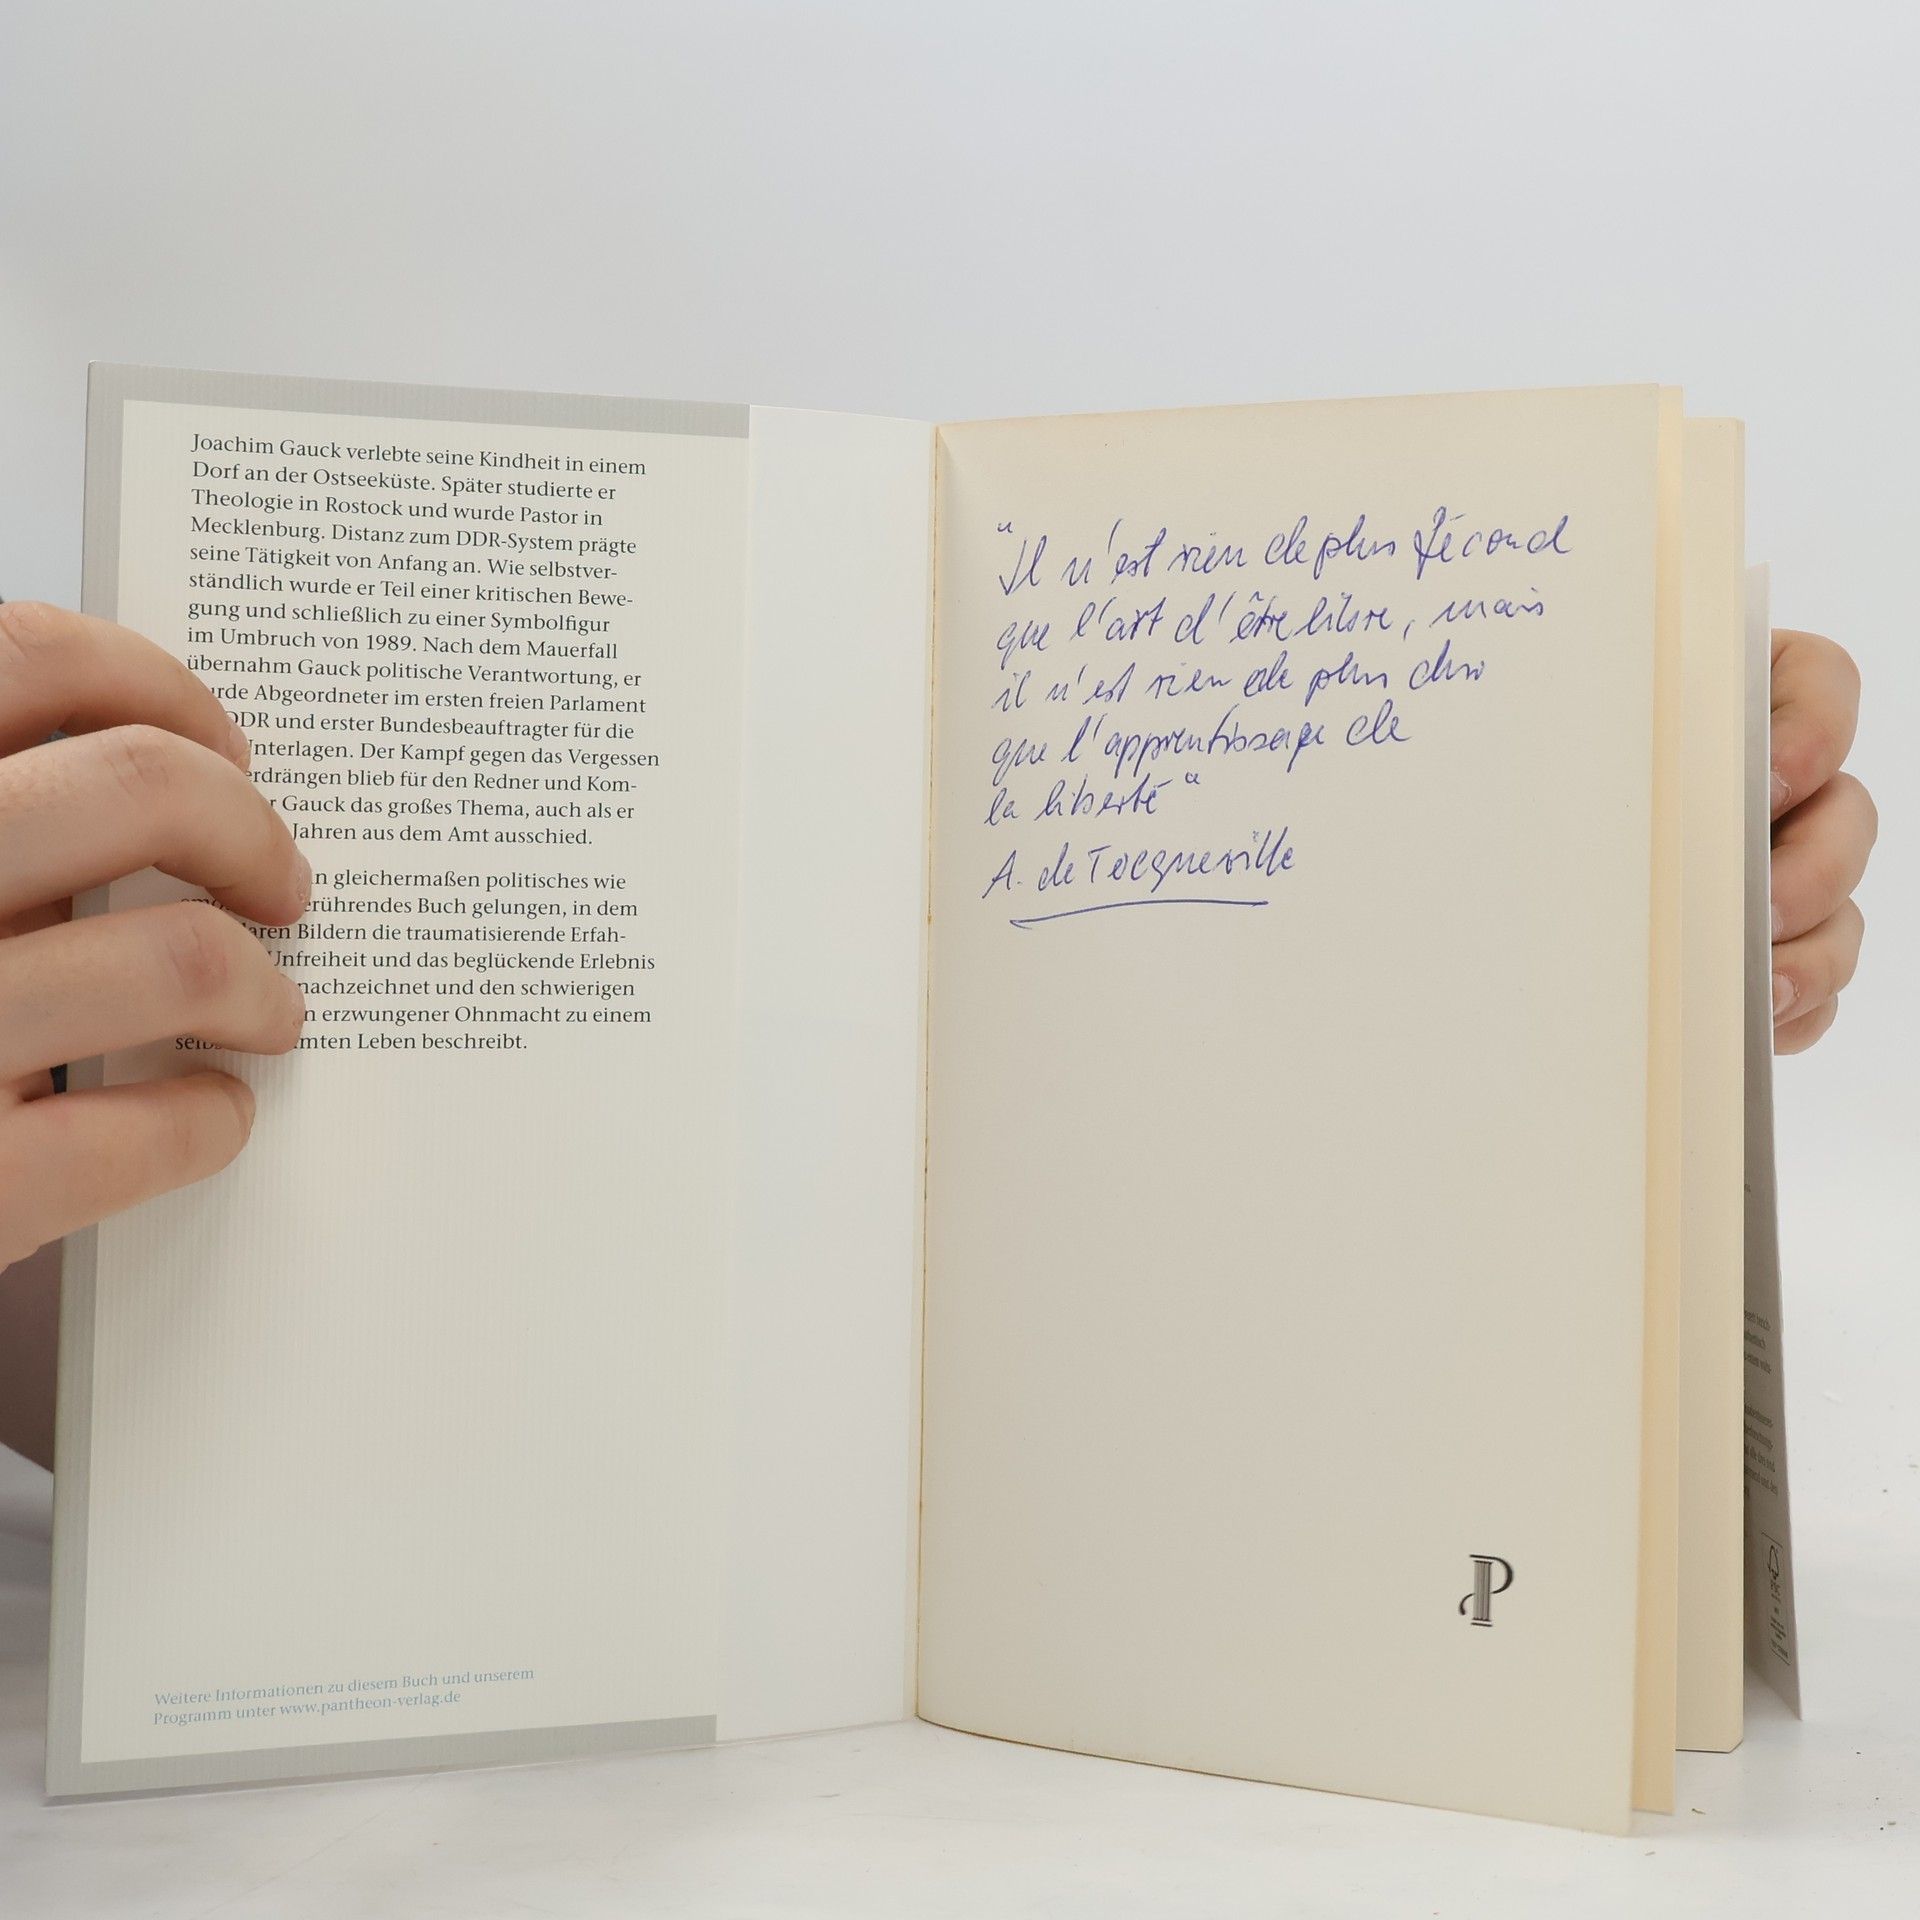 Joachim Gauck verlebte seine Kindheit in einem
Dorf an der Ostseeküste. Später studierte er
Theologie in Rostock und wurde Pastor in
Mecklenburg. Distanz zum DDR-System prägte
seine Tätigkeit von Anfang an. Wie selbstver-
ständlich wurde er Teil einer kritischen Bewe-
gung und schließlich zu einer Symbolfigur
im Umbruch von 1989. Nach dem Mauerfall
übernahm Gauck politische Verantwortung, er
Abgeordneter im ersten freien Parlament
DDR und erster Bundesbeauftragter für die
Unterlagen. Der Kampf gegen das Vergessen
erdrängen blieb für den Redner und Kom-
Gauck das großes Thema, auch als er
Jahren aus dem Amt ausschied.
gleichermaßen politisches wie
erührendes Buch gelungen, in dem
Bildern die traumatisierende Erfah-
Unfreiheit und das beglückende Erlebnis
nachzeichnet und den schwierigen
erzwungener Ohnmacht zu einem
mten Leben beschreibt.
Weitere Informationen zu diesem Buch und unserem
Programm unter www.pantheon-verlag.de
"Il n'est rien de plus fécond
que l'art d'être libre, mais
il n'est rien de plus dur
que l'apprentissage de
la liberté"
A. de Tocqueville
P